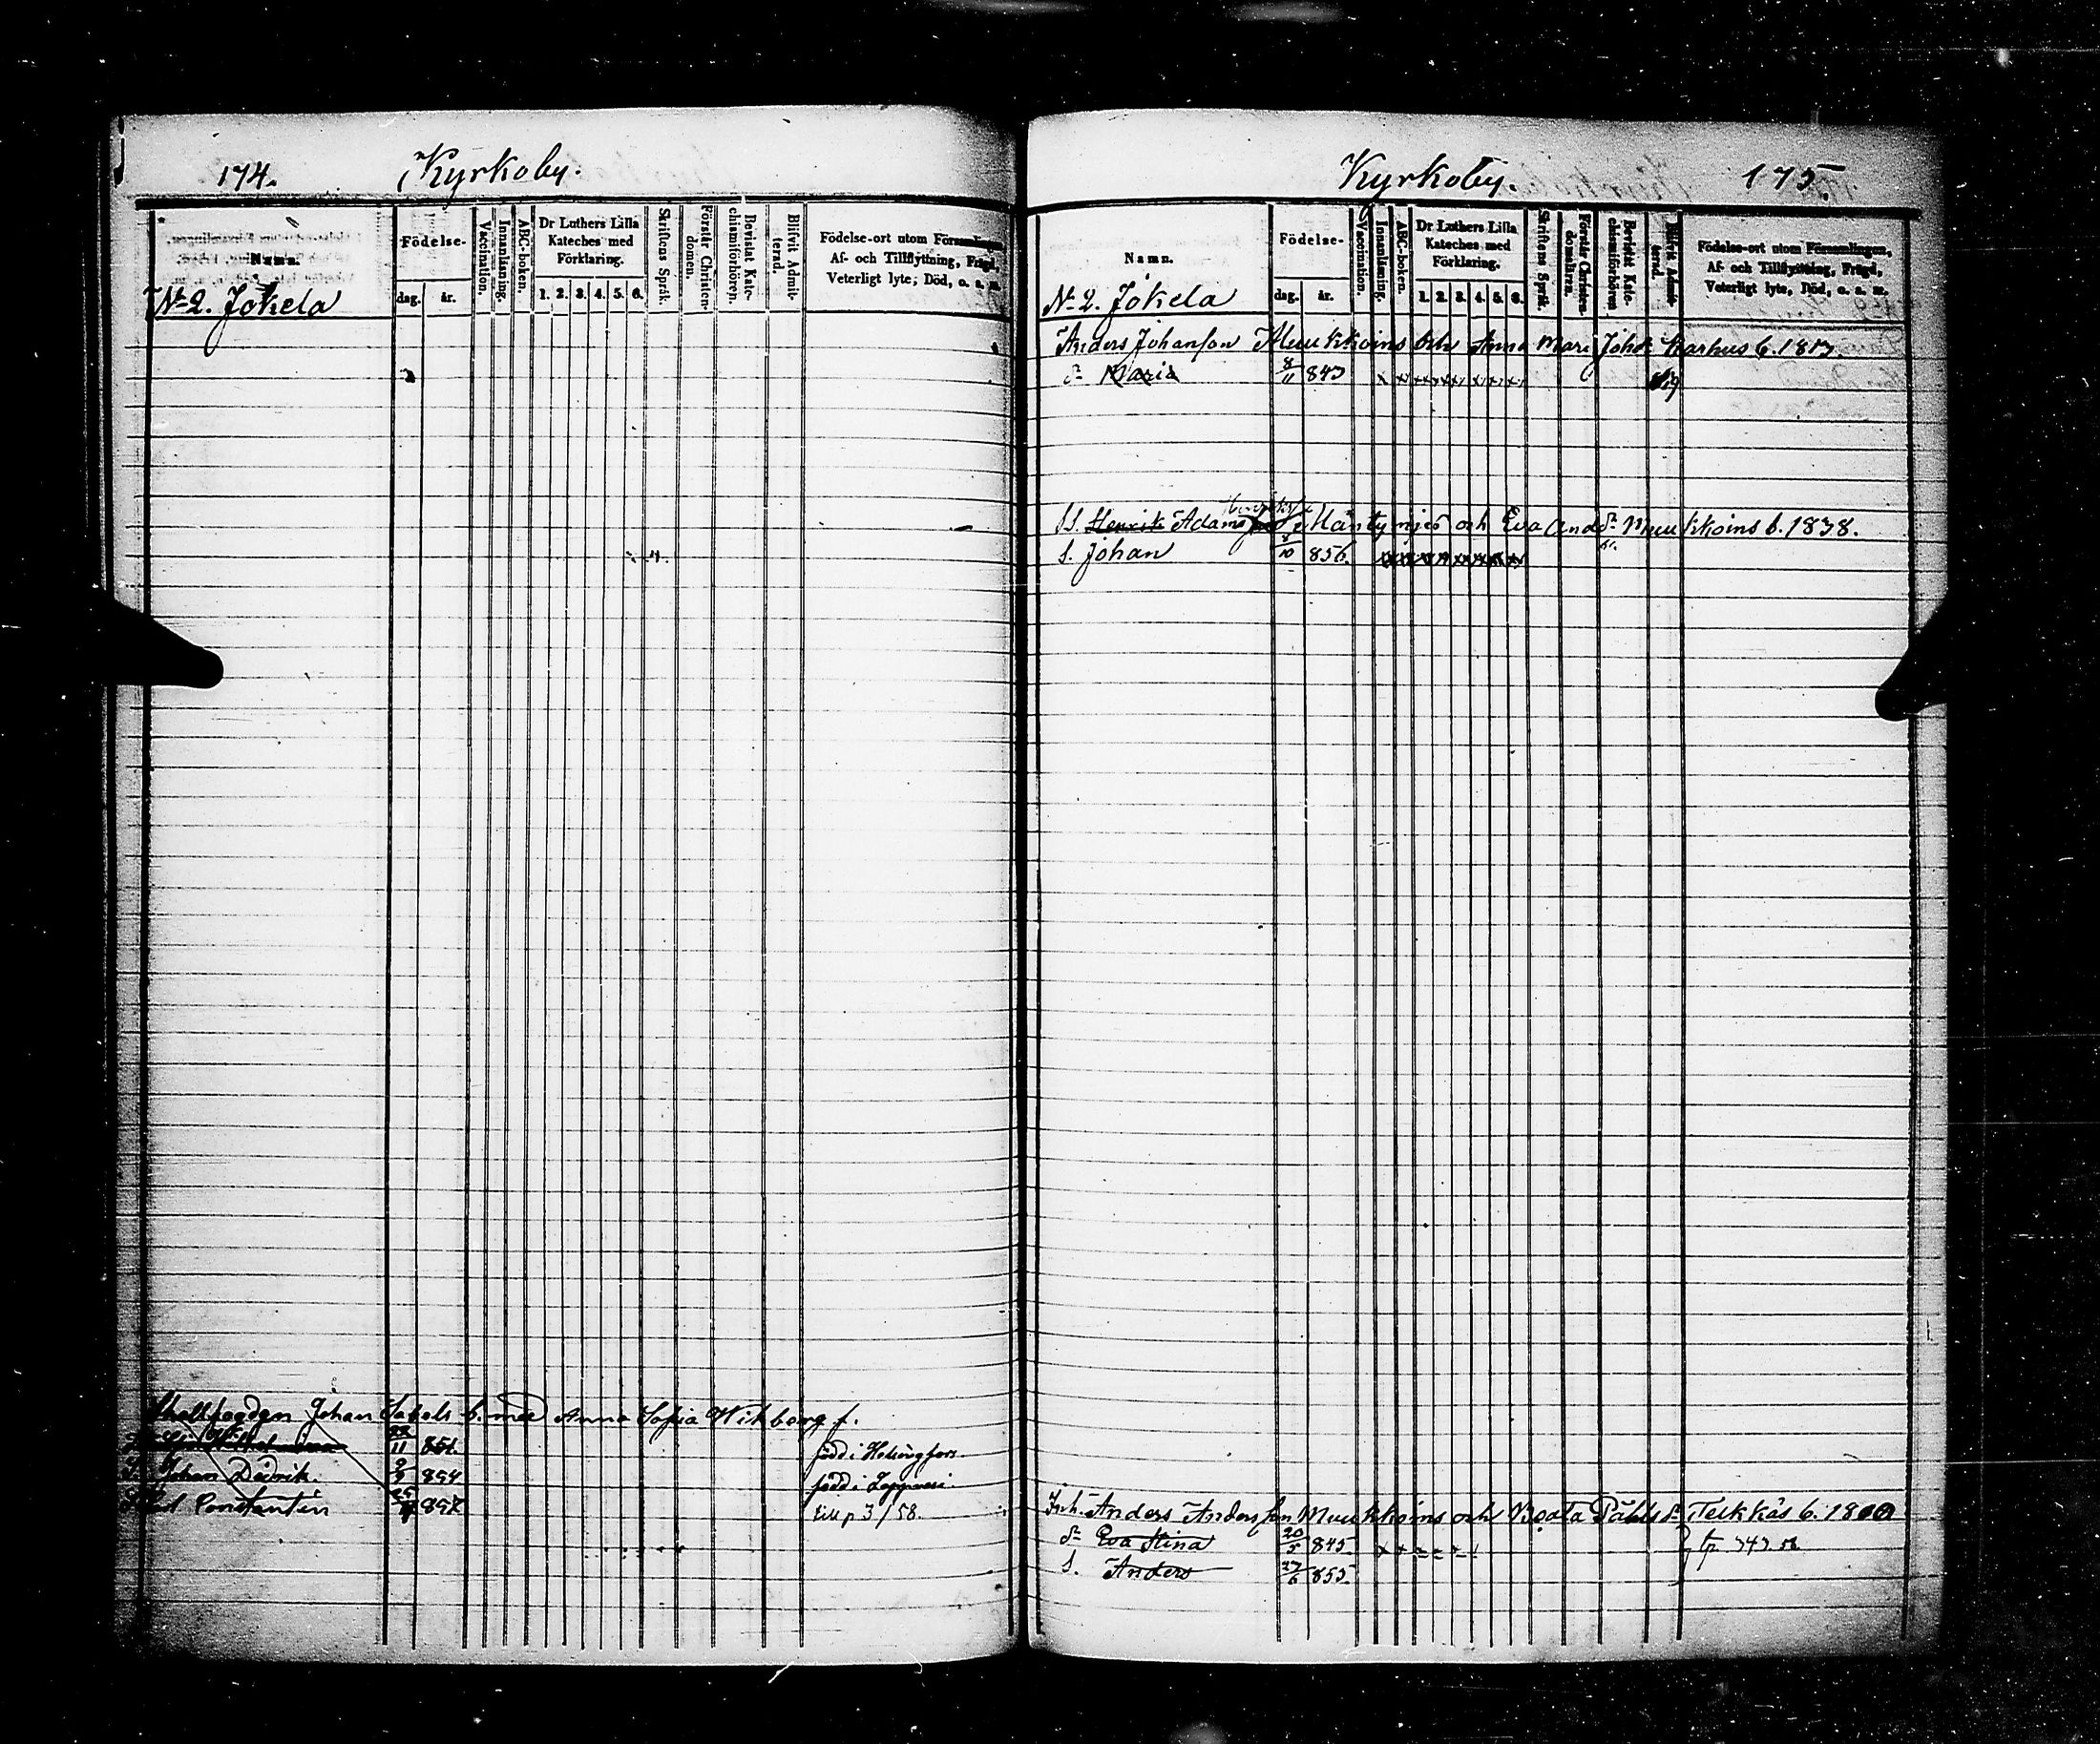 174. Kyrkoby.
Namn.
Födelse-
dag. år.
Vaccination.
Innanläsning.
ABC-boken.
Dr Luthers Lilla
Kateches med
Förklaring.
1. 2. 3. 4. 5. 6.
Skriftens Språk.
Förstår Christen-
domen.
Bevistat Kate-
chismiförhören.
Blifvit Admit-
terad.
Födelse-ort utom Församlingen,
Af- och Tillflyttning, Frägd,
Veterligt lyte, Död, o. s. m.
No 2. Jokela
Johan Sabels b. med Anna Sofia Wikberg f.
11 851 född i Helsingfors.
Johan Didrik. 9 854 född i
Constantin till p 3/58.
Kyrkoby. 175.
Namn.
Födelse-
dag. år.
Vaccination.
Innanläsning.
ABC-boken.
Dr Luthers Lilla
Kateches med
Förklaring.
1. 2. 3. 4. 5. 6.
Skriftens Språk.
Förstår Christen-
domslära.
Bevistat Kate-
chismiförhören.
Blifvit Admit-
terad.
Födelse-ort utom Församlingen,
Af- och Tillflyttning, Frägd,
Veterligt lyte, Död, o. s. m.
No 2. Jokela
Anders Johansson Muukkoins och Anna Mari Joh. Karhus b. 1817.
dr Maria 8/11 843
Henrik Adams och Eva And. dr Muukkoins b. 1838.
S. Johan 8/10 856.
Inh. Anders Andersson Muukkoins och Beata Påhls dr Teikkäs b. 1800
dr Eva Stina 20/5 845
S. Anders 27/6 855